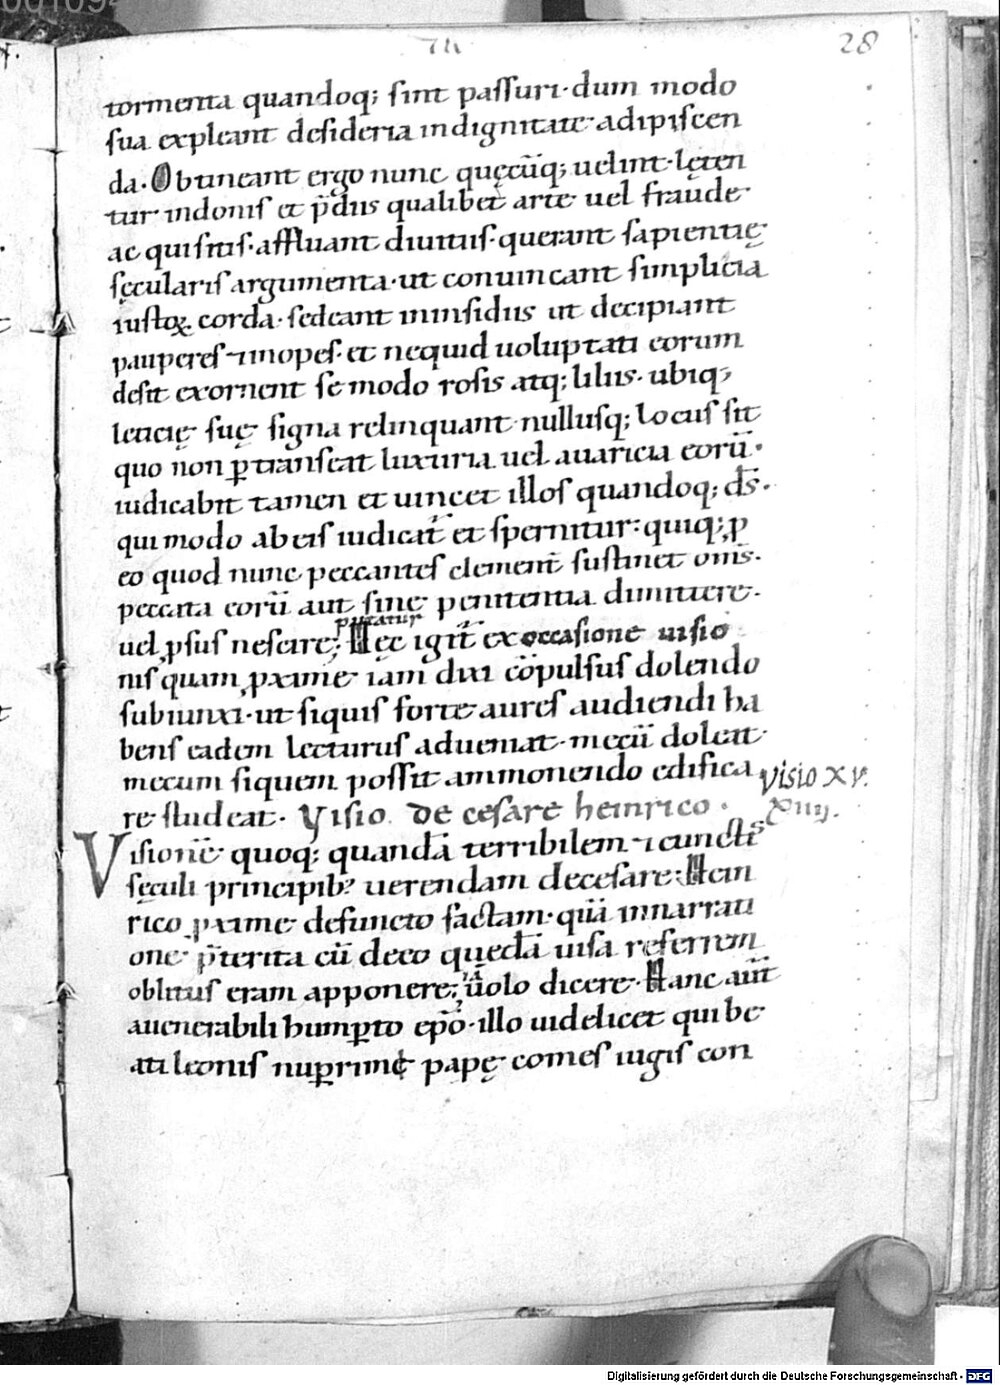 28
tormenta quandoq; sint passuri· dum modo
sua expleant desideria indignitate adipiscen
da· Obtineant ergo nunc quęcūq; uelint· lęten
tur in donis et p̄diis qualibet arte uel fraude
ac quisitis· affluant diuitiis· querant sapientię
sęcularis argumenta· ut conuincant simplicia
iustoꝝ corda· sedeant in insidiis ut decipiant
pauperes ⁊ inopes· et nequid uoluptati eorum
desit exornent se modo rosis atq; liliis· ubiq;
leticię suę signa relinquant· nullusq; locus sit
quo non ꝑtranseat luxuria uel auaricia eorū·
iudicabit tamen et uincet illos quandoq; d̄s·
qui modo ab eis iudicat̄ et spernitur· quiq; ꝓ
eo quod nunc peccantes clement̄ sustinet om̄s·
peccata eorū aut sine penitentia dimittere·
putatur
uel ꝓsus nescire; Hęc igit̄ ex occasione uisio
nis quam ꝓxime iam dixi cōpulsus dolendo
subiunxi· ut siquis forte aures audiendi ha
bens eadem lecturus adueniat· mecū doleat·
mecum siquem possit ammonendo edifica
Visio XV.
re studeat· Visio de cesare heinrico·
XIIII.
Visionē quoq; quandā terribilem ⁊ cunctis
sęculi principib; uerendam de cesare Hein
rico ꝓxime defuncto factam· quā in narrati
one p̄terita cū de eo quedā uisa referrem
oblitus eram apponere; uolo dicere· Hanc aut̄
a uenerabili humꝑto ep̄o· illo uidelicet qui be
ati leonis nuꝑrime papę comes iugis con
Digitalisierung gefördert durch die Deutsche Forschungsgemeinschaft - DFG